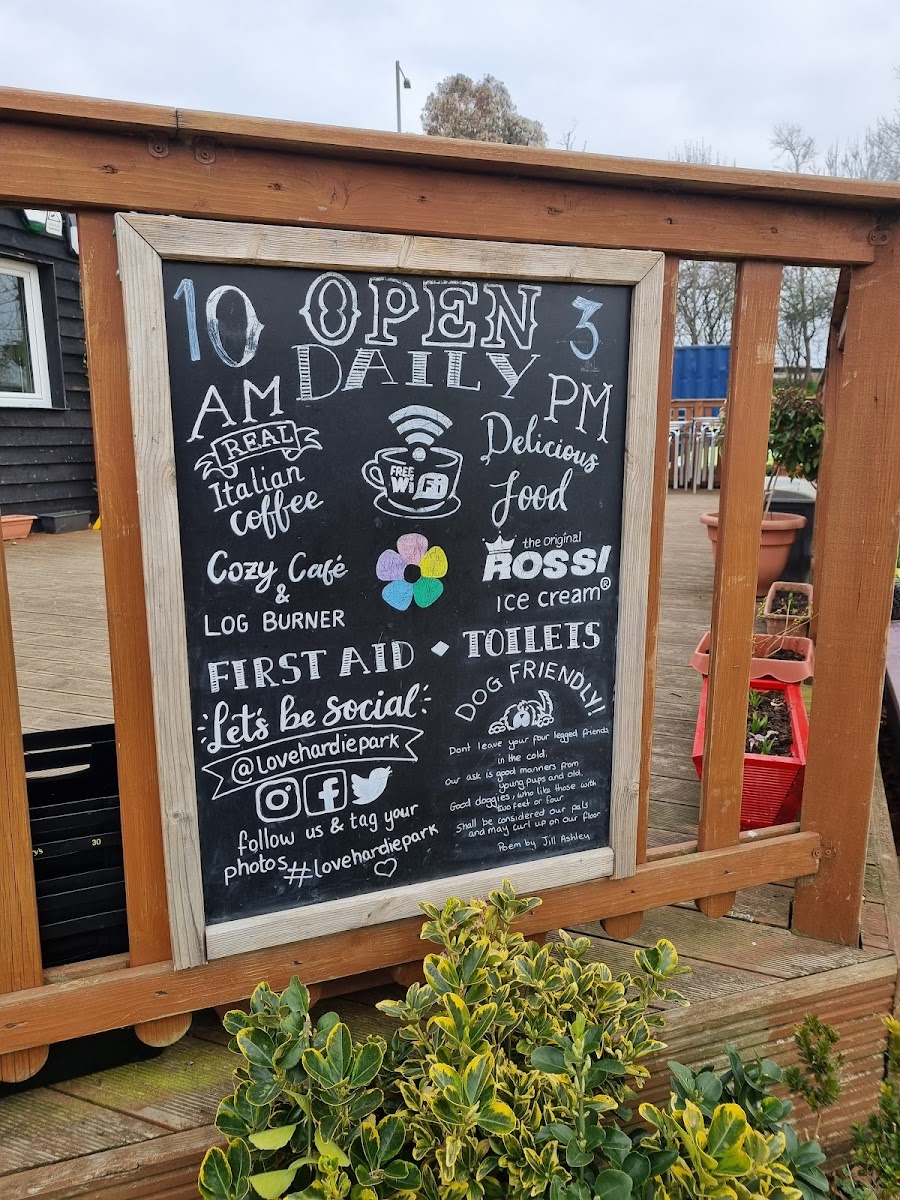 10 OPEN 3
AM DAILY PM
REAL
Italian
coffee
FREE
WiFi
Delicious
food
Cozy Café
&
LOG BURNER
the Original
ROSSI
ice cream®
FIRST AID • TOILETS
Let's be social
@lovehardiepark
follow us & tag your
photos #lovehardiepark
DOG FRIENDLY!
Dont leave your four legged friends
in the cold,
Our ask is good manners from
young pups and old.
Good doggies, who like those with
two feet or four
Shall be considered our pals
and may curl up on our floor
Poem by Jill Ashley
30